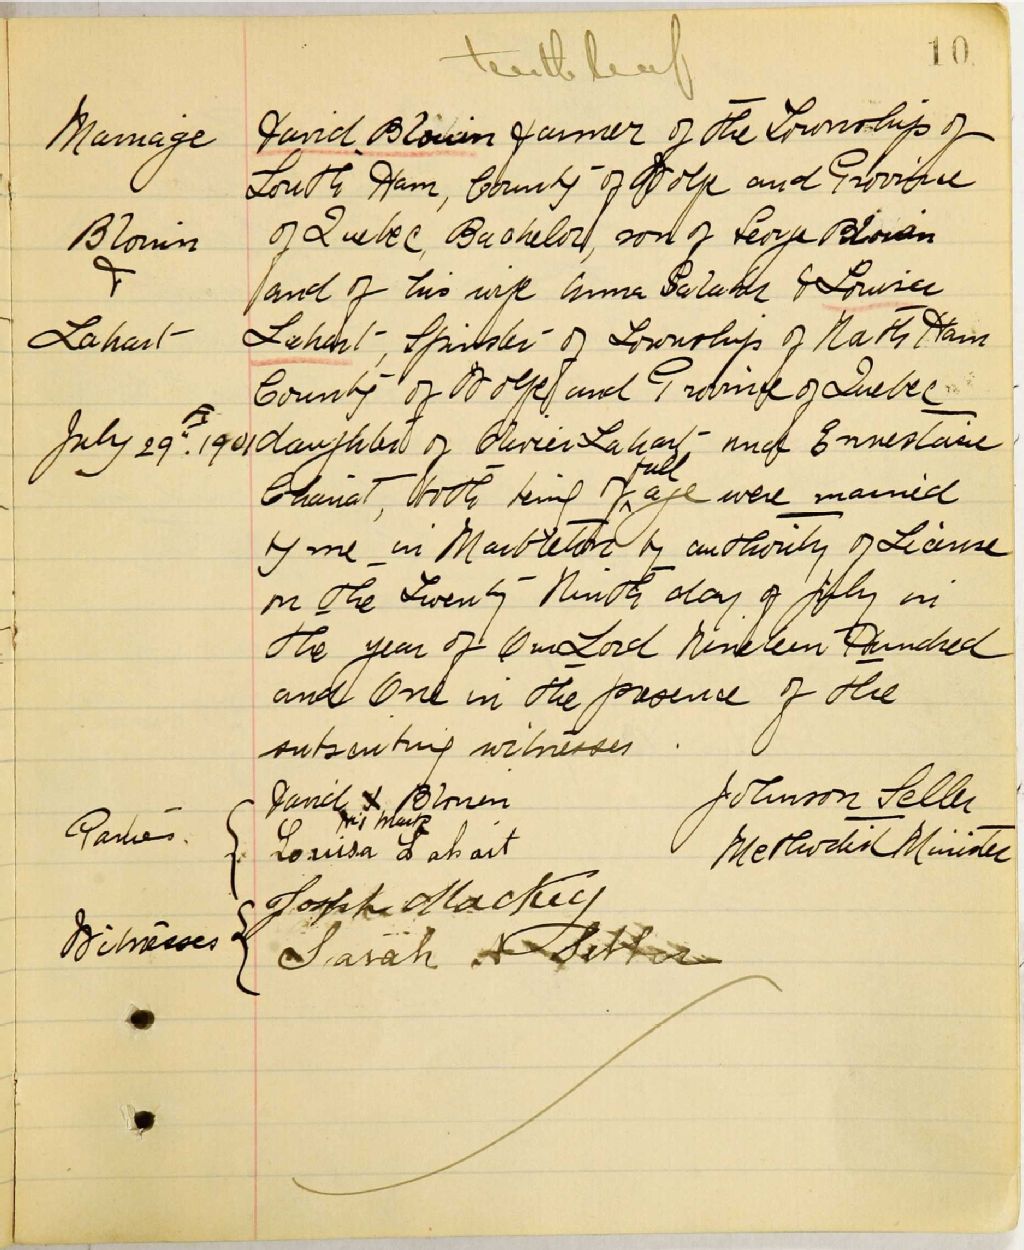 tenth leaf
10
Marriage
Blouin
&
Lahart
July 29th. 1901
David Blouin farmer of the Township of
South Ham, County of Wolfe and Province
of Quebec, Bachelor, son of George Blouin
and of his wife Anna & Louisa
Lahart, Spinster of Township of North Ham
County of Wolfe and Province of Quebec
daughter of Olivier Lahart and Ernestine
both being of full age were married
by me in Marbleton by authority of License
on the Twenty Ninth day of July in
the year of Our Lord Nineteen Hundred
and One in the presence of the
subscribing witnesses.
Parties.
David X Blouin
his mark
Louisa Lahart
Johnson Seller
Methodist Minister
Witnesses
Joseph Mackey
Sarah A Seller